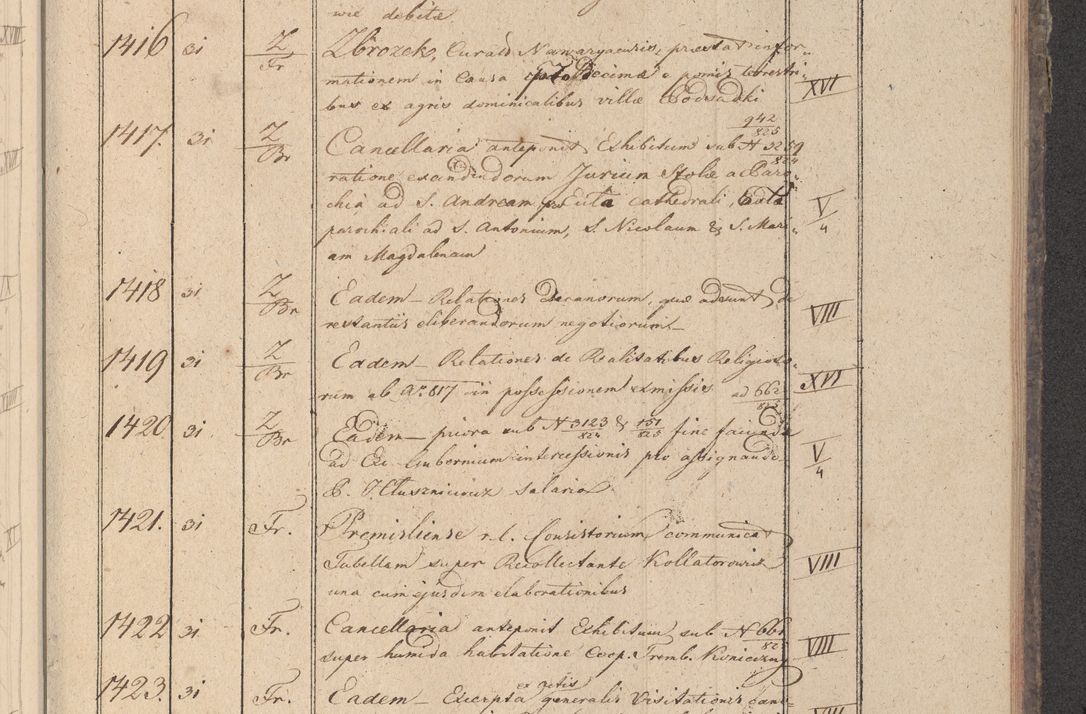 wie debitæ
1416 31 Z/Fr Zbrozek, Curatus Nawaryaensis, præstat infor-
mationem in Causa Decimæ e pomis terrestri- XVI
bus ex agris dominicalibus villæ Podsadki
942/825
1417. 31 Z/Br Cancellaria anteponit Exhibitum sub N 3259/824
ratione exscindendorum Jurium Stolæ a Paro-
chia ad S. Andream, cathedrali, V/4
parochiali ad S. Antonium, S. Nicolaum & S. Mari-
am Magdalenam
1418 31 Z/Br Eadem – Relationes Decanorum, quæ adsunt de
restantiis eliberandorum negotiorum – VIII
1419 31 Z/Br Eadem – Relationes de Realitatibus Religioso-
rum ab Ao 817 in possessionem exmissis ad 662 XVI
1420 31 Z/Br Eadem – priora sub N 3123/824 & 151/825 fine faciendæ
ad Exc. Gubernium intercessionis pro assignando V/4
P. salario
1421. 31 Fr. Premisliense r. l. Consistorium communicat
Tabellam super Recollectante Kollatorowicz VIII
una cum ejusdem elaborationibus
1422 31 Fr. Cancellaria anteponit Exhibitum sub N 661
super humida habitatione Coop. Tremb. Konieczny VIII
1423. 31 Fr. Eadem – Excerpta ex actis generalis Visitationis
VIII